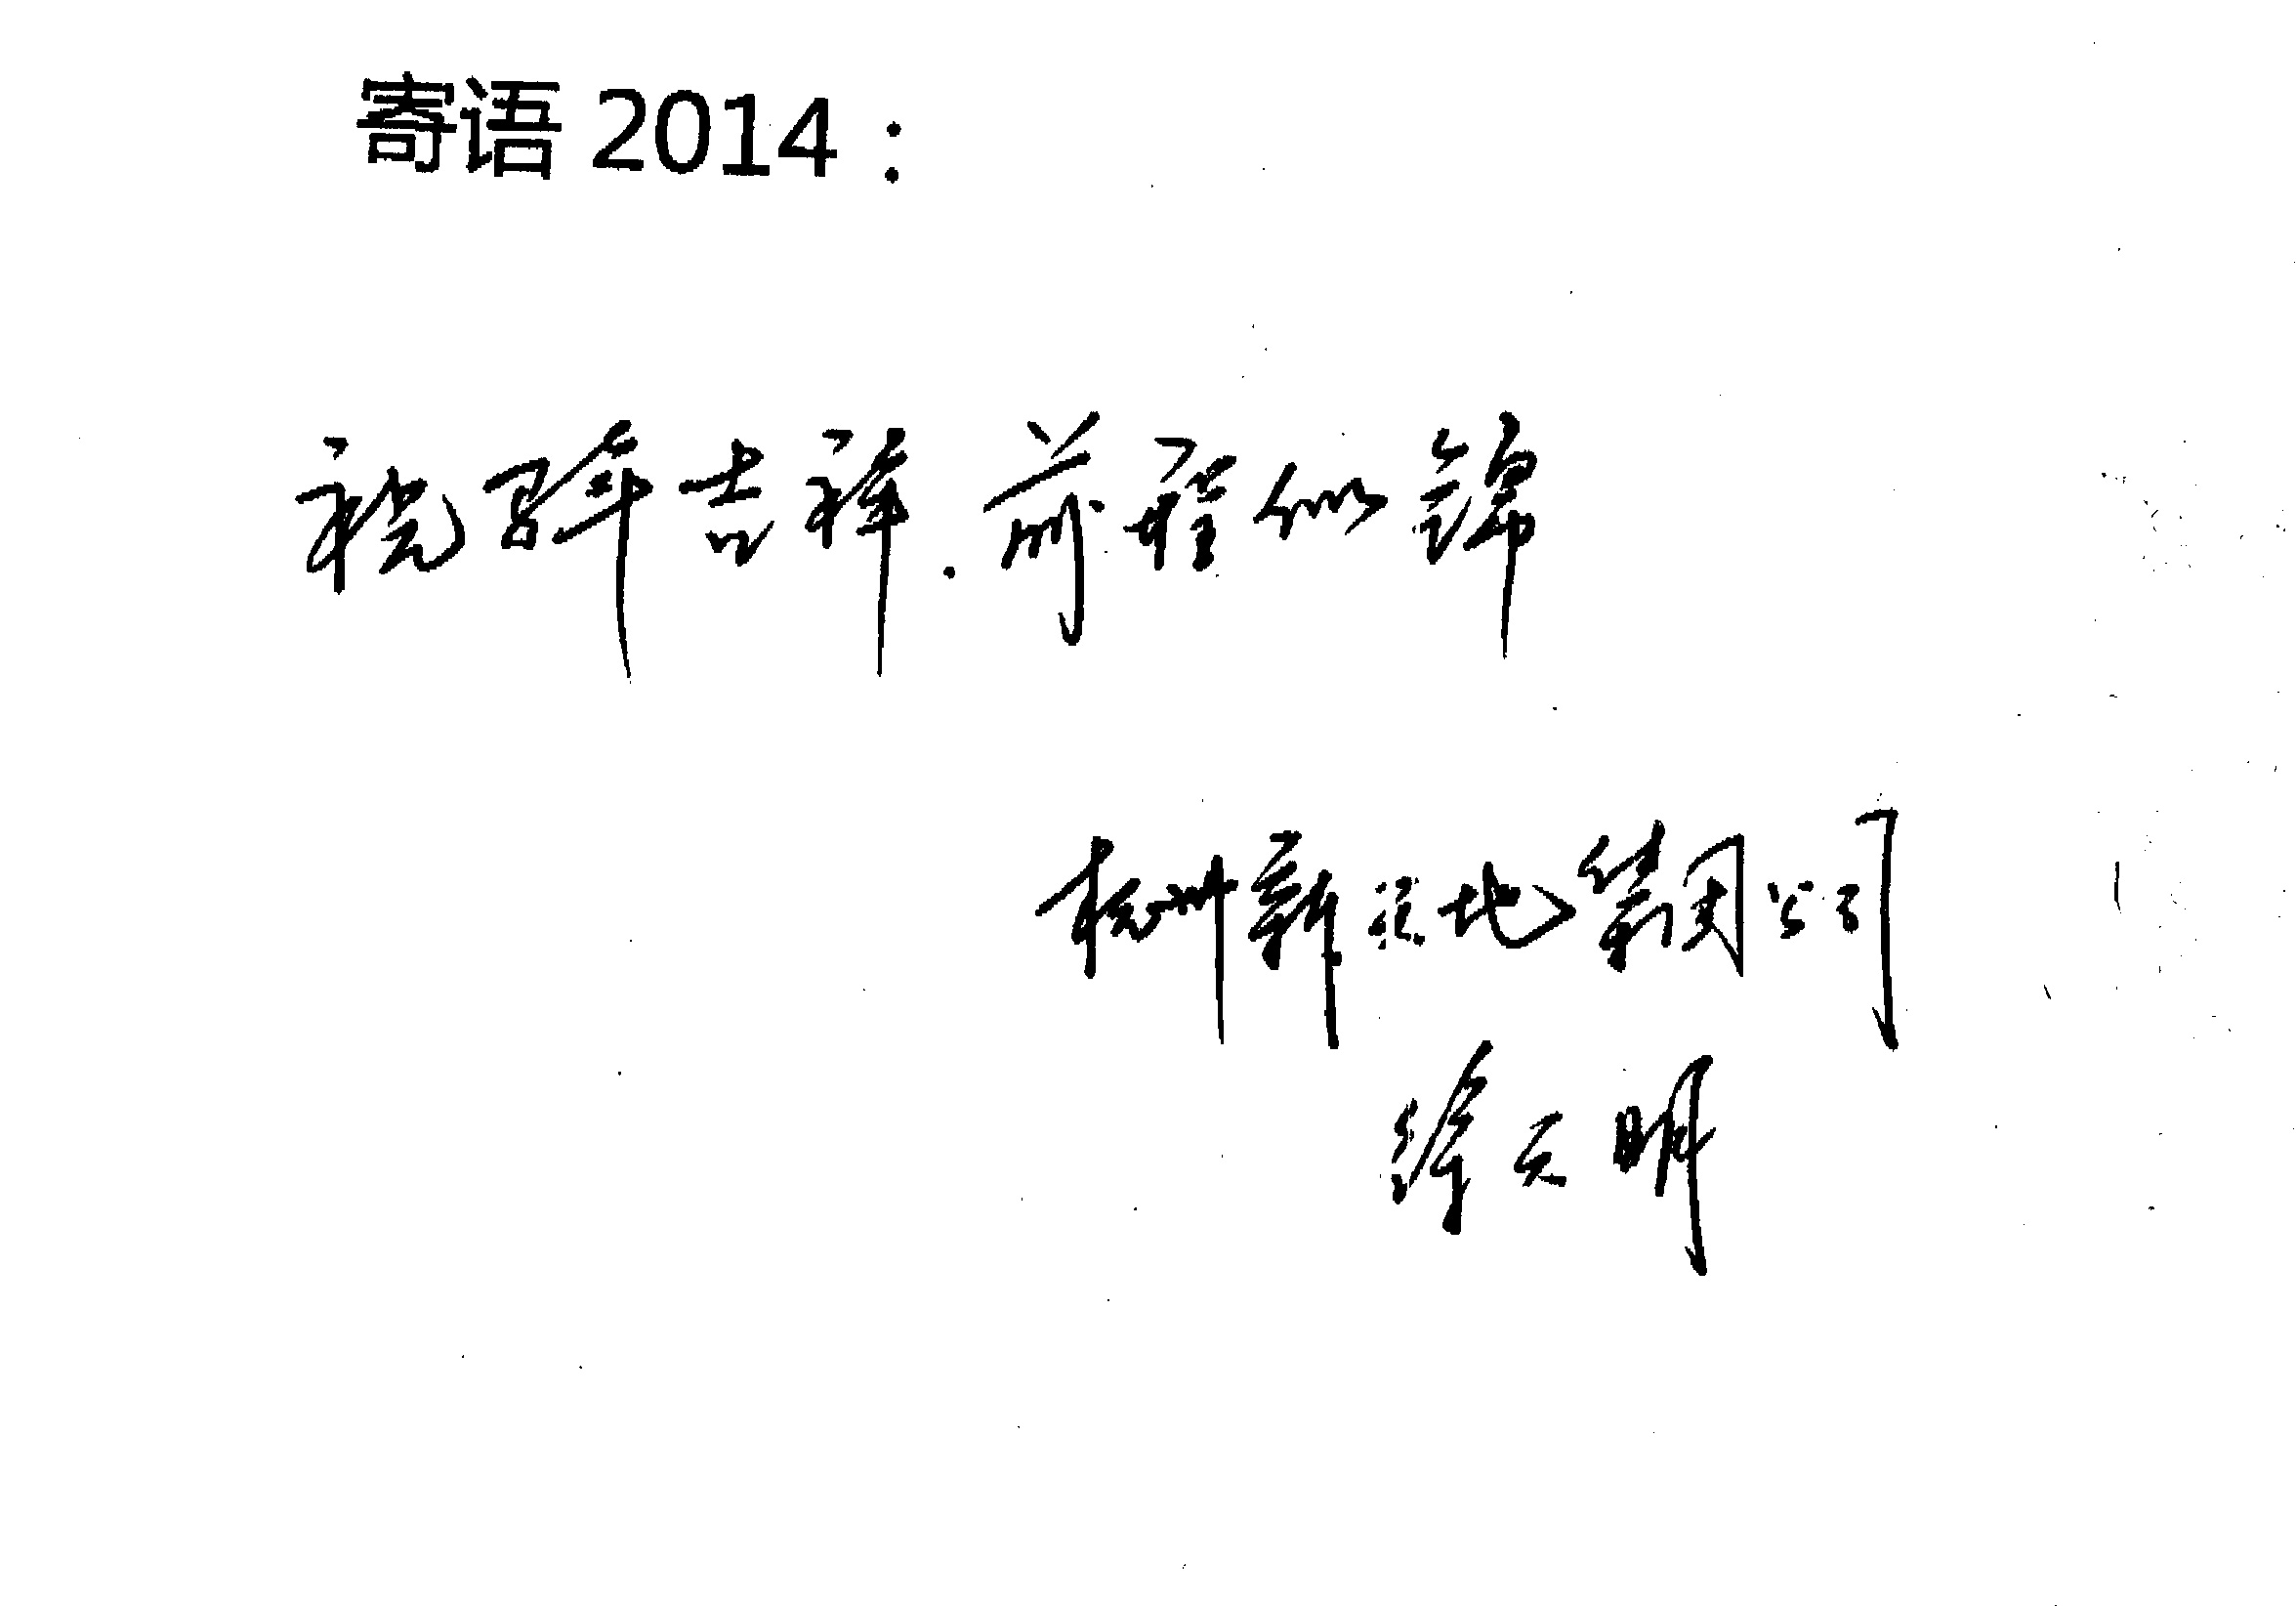 寄语 2014：
祝马年吉祥.前程似锦
杭州新天地集团公司
徐天明